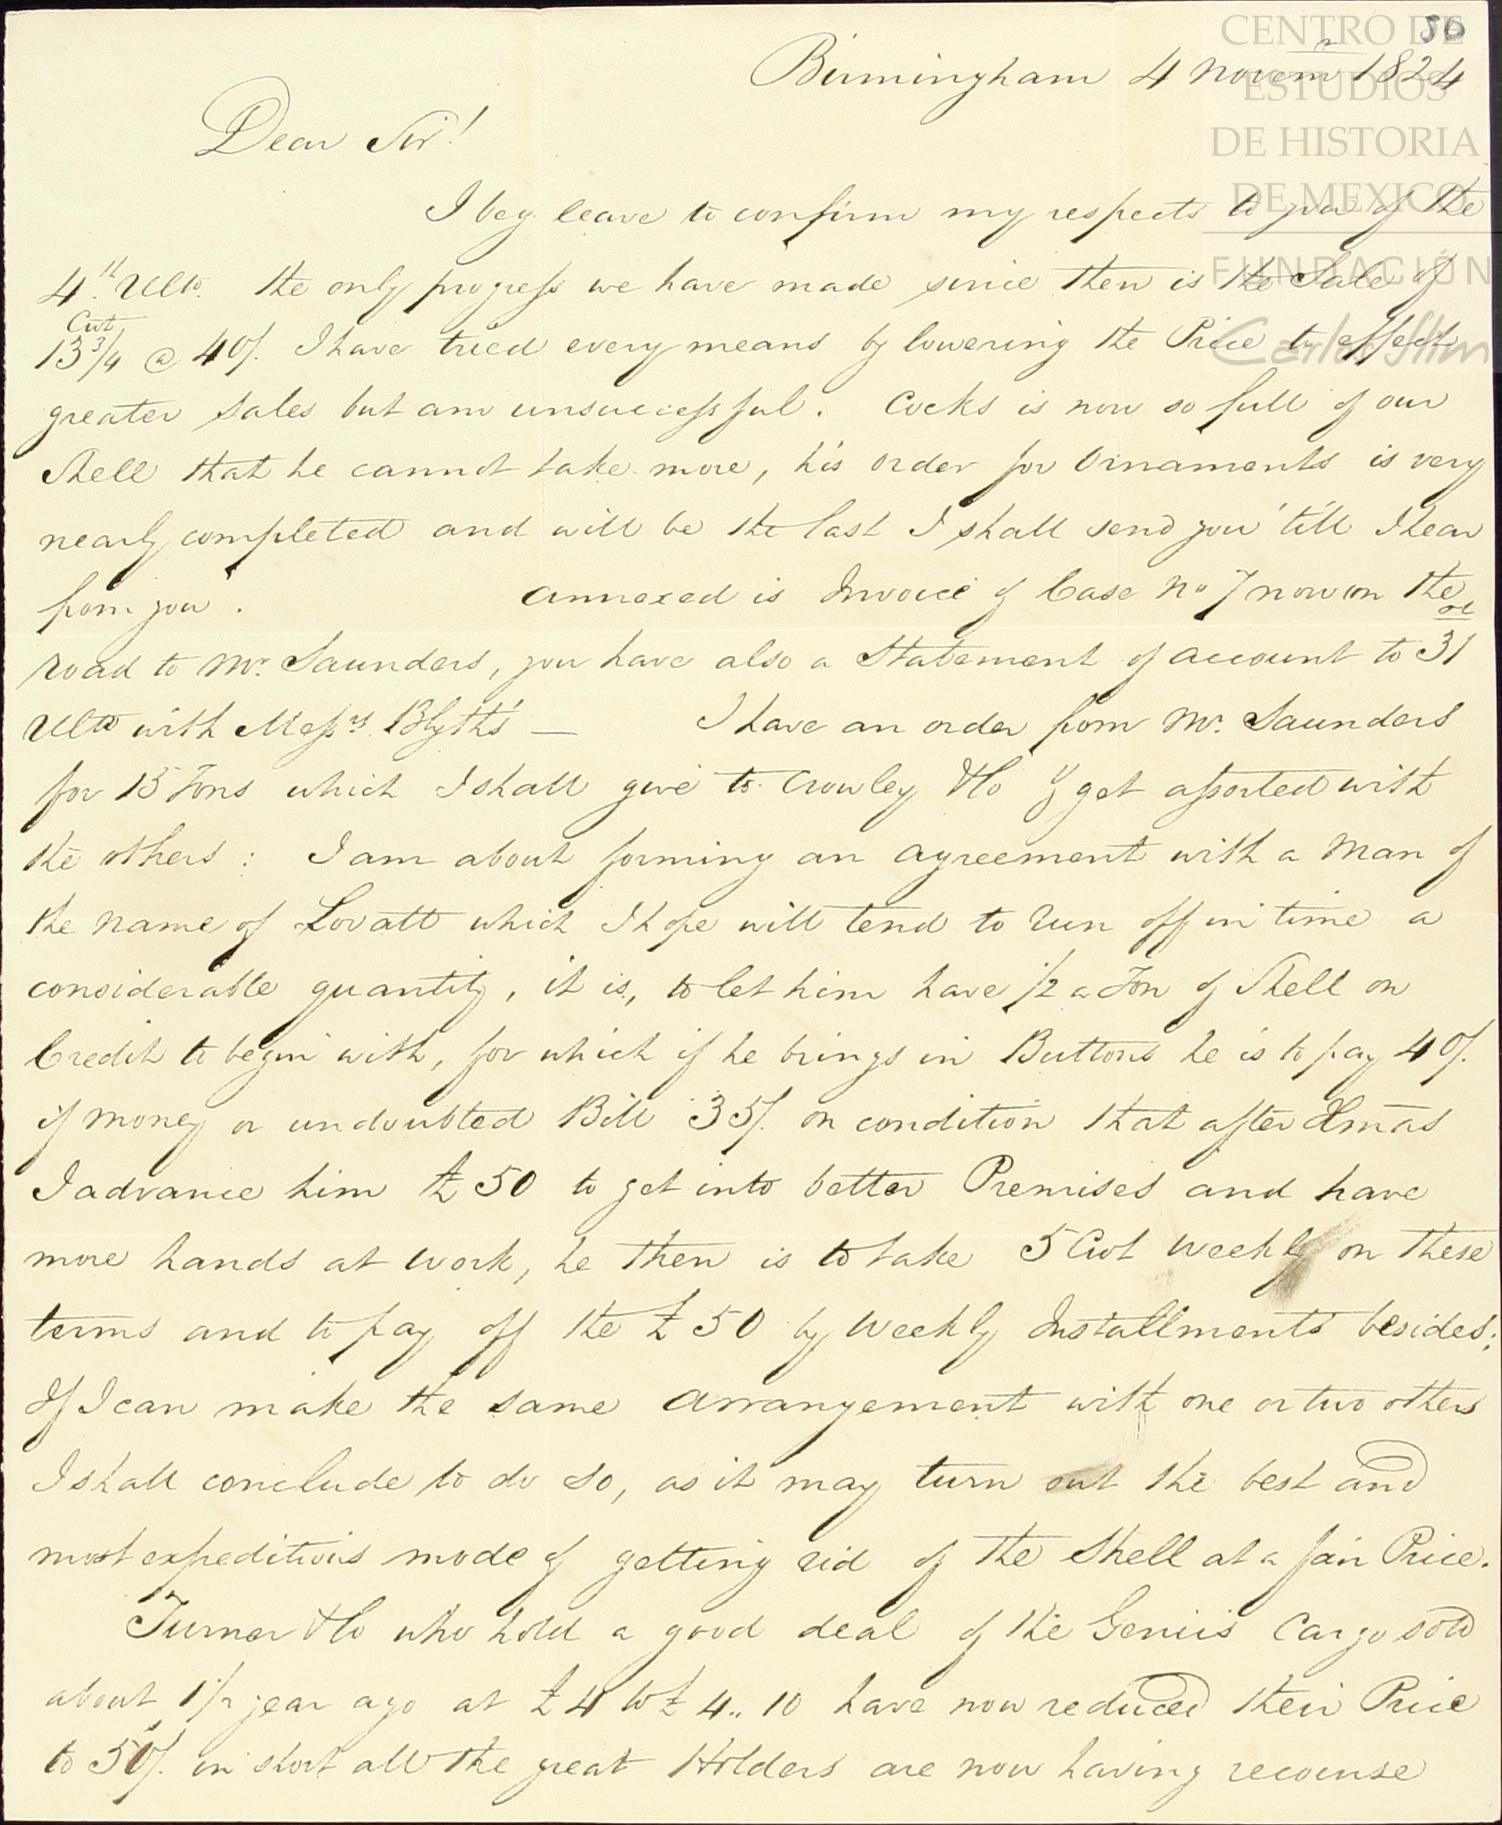 CENTRO DE
ESTUDIOS
DE HISTORIA
DE MEXICO
FUNDACIÓN
Carlos Slim
50
Birmingham 4 Novemr 1824
Dear Sir!
I beg leave to confirm my respects to you of the
4th Ulto. the only progress we have made since then is the Sale of
Cwt
13 3/4 @ 40/. I have tried every means by lowering the Price to effect
greater sales but am unsuccessful. Cocks is now so full of our
Shell that he cannot take more, his order for Ornaments is very
nearly completed and will be the last I shall send you 'till I hear
from you. Annexed is Invoice of Case No 7 now on the
road to Mr. Saunders, you have also a Statement of account to 31st
Ulto with Messrs Blyths — I have an order from Mr. Saunders
for 15 Tons which I shall give to Crowley & Co & get assorted with
the others: I am about forming an agreement with a Man of
the name of Lovatt which I hope will tend to run off in time a
considerable quantity, it is, to let him have 1/2 a Ton of Shell on
Credit to begin with, for which if he brings in Buttons he is to pay 40/.
if money or undoubted Bill 35/. on condition that after Xmas
I advance him £50 to get into better Premises and have
more hands at work, he then is to take 5 Cwt weekly on these
terms and to pay off the £50 by Weekly Installments besides;
If I can make the same arrangement with one or two others
I shall conclude to do so, as it may turn out the best and
most expeditious mode of getting rid of the Shell at a fair Price.
Turner & Co who hold a good deal of the Genius Cargo sold
about 1 1/2 year ago at £4 to £4..10 have now reduced their Price
to 50/. in short all the great Holders are now having recourse